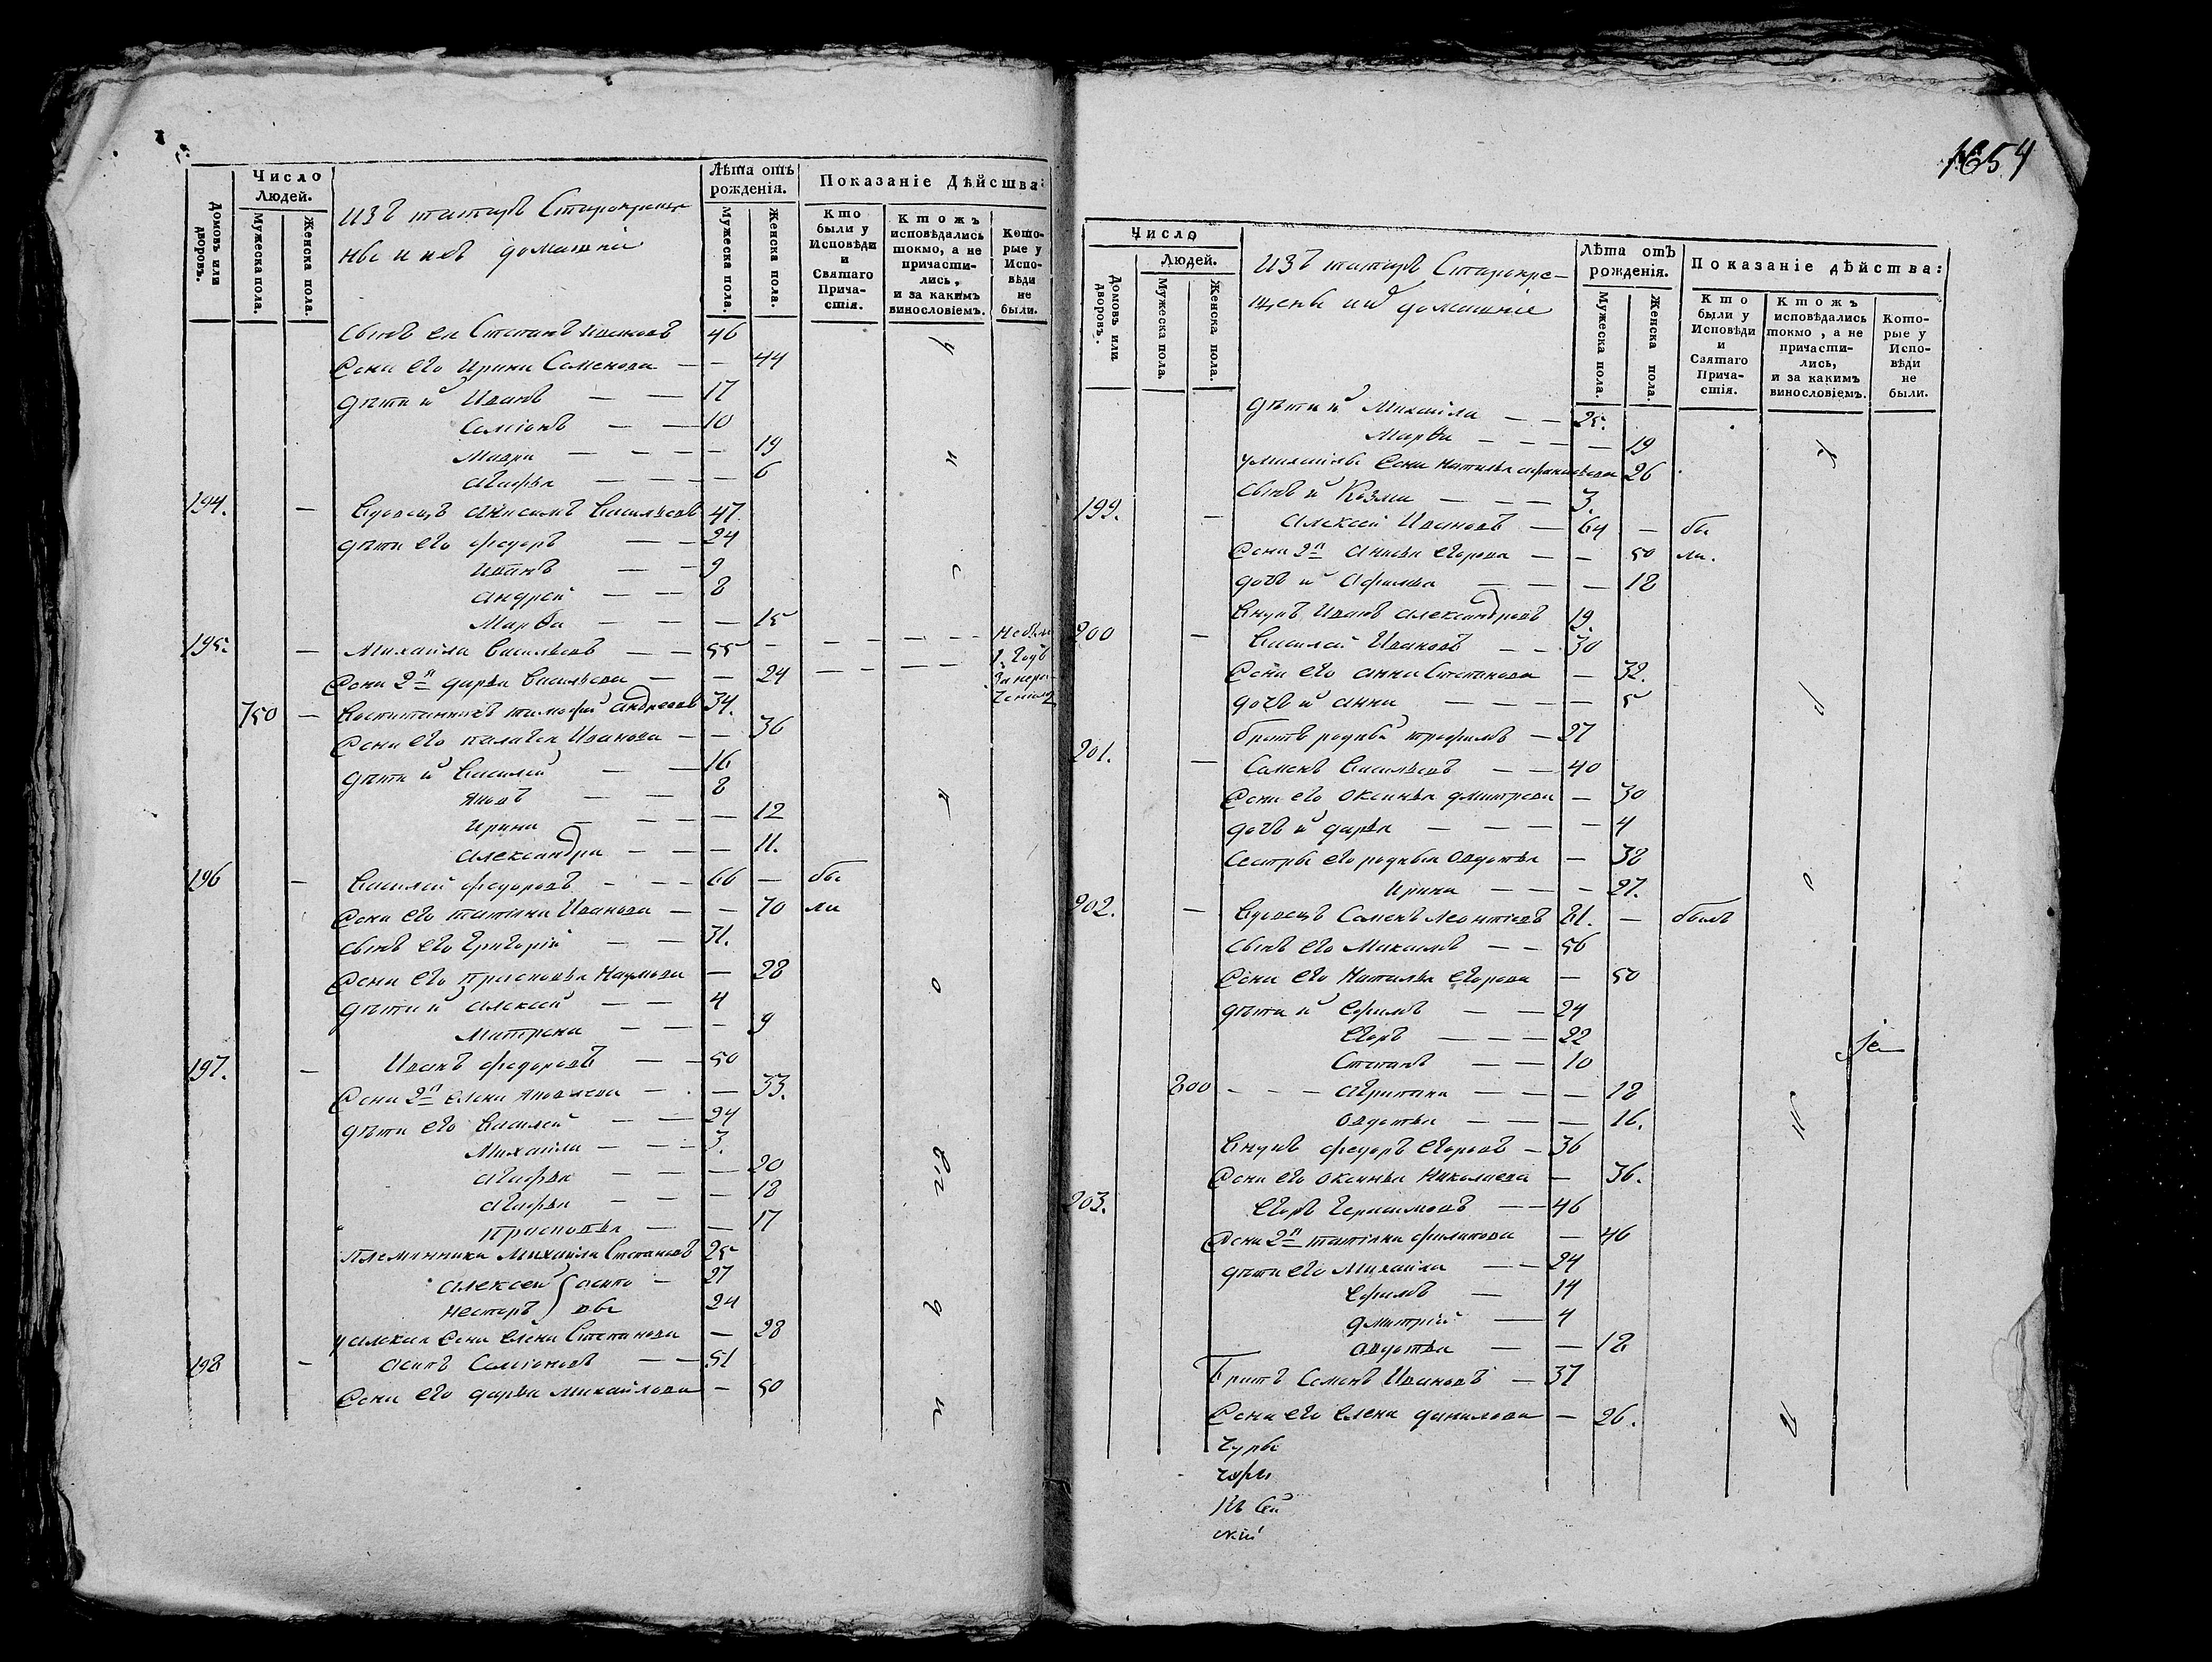 Число
Людей.
Домовъ или дворовъ.
Мужеска пола.
Женска пола.
Изъ татаръ Старокреще
ны и ихъ домашніи
Лѣта отъ рожденія.
Мужеска пола.
Женска пола.
Показаніе Дѣйства:
Кто были у Исповѣди и Святаго Причастія.
Ктожъ исповѣдались токмо, а не причастились, и за какимъ винословіемъ.
Которые у Исповѣди не были.
сынъ ея Степанъ Ивановъ 46
жена его Ирина Семенова — — 44
дѣти и Иванъ — — 17
Семіонъ — — 10
Мавра — — — — 19
Агафья — — — — 6
194. — Вдовецъ Анисимъ Васильевъ 47.
дѣти его Федоръ — — 24
Иванъ — — 9
Андрей — — 8
Марѳа — — — 15
195. — Михайла Васильевъ — — 55 — — — — — Не были
жена 2я Дарья Васильева — — 24 — — — — 1 годъ
750 — Воспитанникъ Тимофей Андреевъ 34.
жена его Палагея Иванова — — 36
дѣти и Василей — — 16
Яковъ — — 8
Ирина — — — — 12
Александра — — — 11.
196 — Василей Федоровъ — — — 66 — бы
жена его Татіяна Иванова — — 70 ли
сынъ его Григорій — — 31.
жена его Прасковья Наумова — 28
дѣти и Алексей — — 4
Матрена — — — 9
197. — Иванъ Федоровъ — — 50
жена 2я Елена Яковлева — — 33.
дѣти его Василей — — 24
Михайла — — — 3.
Агафья — — — — 20
Агафья — — — 18
Прасковья — — 17
Племянники Михайла Степановъ 25
Алексей — 27
Несторъ 24
у Алексея жена Елена Степанова — 28
198 — Осипъ Семіоновъ — — 51
жена его Дарья Михайлова — 50
1654
Число
Людей.
Домовъ или дворовъ.
Мужеска пола.
Женска пола.
Изъ татаръ Старокре-
щены ихъ домашніе
Лѣта отъ рожденія.
Мужеска пола.
Женска пола.
Показаніе дѣйства:
Кто были у Исповѣди и Святаго Причастія.
Ктожъ исповѣдались токмо, а не причастились, и за какимъ винословіемъ.
Которые у Исповѣди не были.
дѣти и Михайла — — 25.
Марѳа — — — — 19
у Михайлы жена Наталья 26
сынъ и Козма — — — 3.
199. — Алексей Ивановъ — 64 — бы
жена 2я Анисья Егорова — — 50 ли.
дочь и Афимья — — — 18
Внукъ Иванъ Александровъ 19.
200 — Василей Ивановъ — — 30
жена его Анна Степанова — 32.
дочь и Анна — — — — 5
братъ родный Трофимъ — 27
201. — Семенъ Васильевъ — — 40
жена его Оксинья Дмитрева — 30
дочь и Дарья — — — — 4
Сестры его родныя Авдотья — 38
Ирина — — — 27.
202. — Вдовецъ Семенъ Леонтіевъ 81. — былъ
сынъ его Максимъ — — 56
жена его Наталья Егорова — 50
дѣти и Ефимъ — — 24
Егоръ — — — 22
Степанъ — — 10
800 — — — Агрипина — — — 18
Авдотья — — — 16.
Внукъ Федоръ Егоровъ — 36
жена его Оксинья Николаева — 36.
203. Егоръ Герасимовъ — — 46
жена 2я Татіяна Филипова — 46
дѣти его Михайла — — 24
Ефимъ — 14
Дмитрій — 4
Авдотья — — 18
Братъ Семенъ Ивановъ — 37
жена его Елена Данилова — 26.